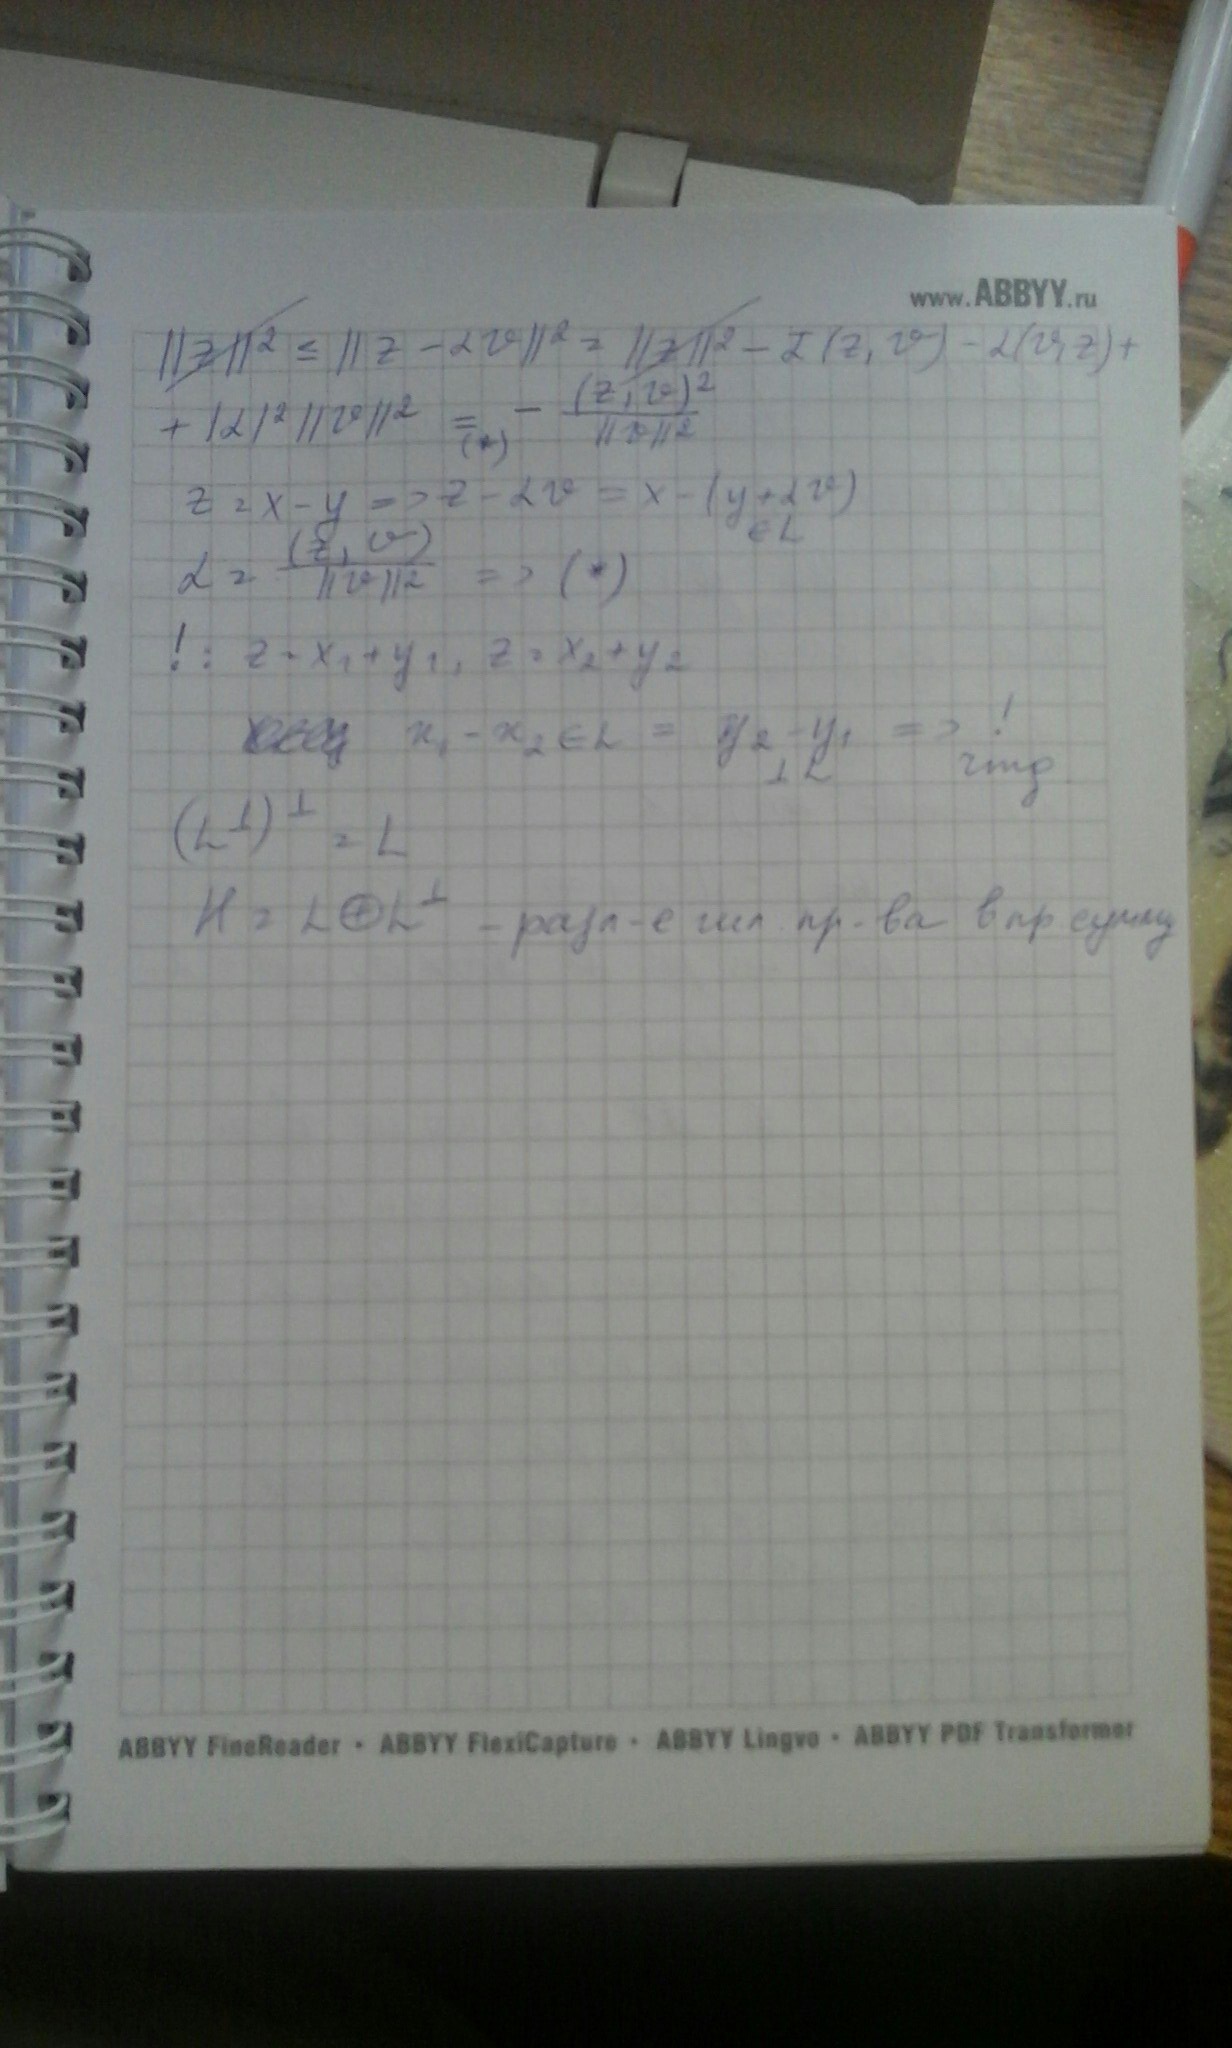 www.ABBYY.ru
||z||² ≤ ||z - αv||² = ||z||² - ᾱ(z, v) - α(v, z) +
+ |α|² ||v||² =(*) - (z, v)² / ||v||²
z = x - y => z - αv = x - (y + αv) ∈ L
α = (z, v) / ||v||² => (*)
! : z = x₁ + y₁, z = x₂ + y₂
x₁ - x₂ ∈ L = y₂ - y₁ ⊥ L => ! чтд
(L^⊥)^⊥ = L
H = L ⊕ L^⊥ - разл-е гил. пр-ва в пр сумму
ABBYY FineReader • ABBYY FlexiCapture • ABBYY Lingvo • ABBYY PDF Transformer